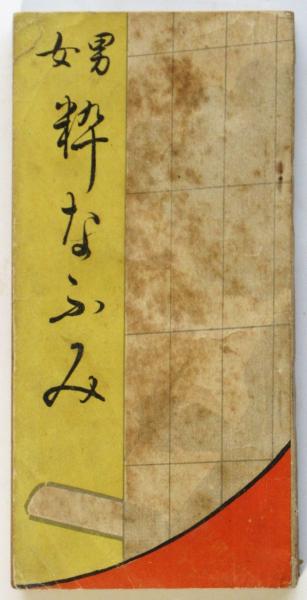 男女
粋なふみ